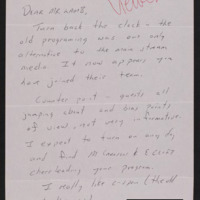 Dear Mr Lamb,
Turn back the clock - the
old programing was our only
alternative to the main stream
media. It now appears you
have joined their team.
Counter point - guests all
jumping about and bias points
of view, not very informative.
I expect to turn on any day
and find Mr
cheerleading your program.
I really like c-span (the old